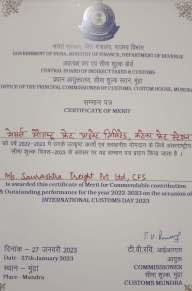 भारत सरकार, वित्त मंत्रालय, राजस्व विभाग
GOVERNMENT OF INDIA, MINISTRY OF FINANCE, DEPARTMENT OF REVENUE
अप्रत्यक्ष कर एवं सीमा शुल्क बोर्ड
CENTRAL BOARD OF INDIRECT TAXES & CUSTOMS
प्रधान आयुक्त का कार्यालय, सीमा शुल्क सदन, मुंद्रा
OFFICE OF THE PRINCIPAL COMMISSIONER OF CUSTOMS, CUSTOM HOUSE, MUNDRA
सम्मान पत्र
CERTIFICATE OF MERIT
मेसर्स सौराष्ट्र फ्रेट प्राइवेट लिमिटेड,
को वर्ष 2022-2023 में उनके उत्कृष्ट कार्यों एवं सराहनीय योगदान के लिये अंतरराष्ट्रीय
सीमा शुल्क दिवस-2023 के अवसर पर यह सम्मान पत्र प्रदान किया जाता है।
M/s. Saurashtra Freight Pvt Ltd, CFS
is awarded this certificate of Merit for Commendable contribution
& Outstanding performance for the year 2022-2023 on the occasion of
INTERNATIONAL CUSTOMS DAY 2023
दिनांक - 27 जनवरी 2023
Date - 27th January 2023
स्थान - मुंद्रा
Place - Mundra
टी.वी.रवि, आईआरएस
आयुक्त
COMMISSIONER
सीमा शुल्क, मुंद्रा
CUSTOMS MUNDRA